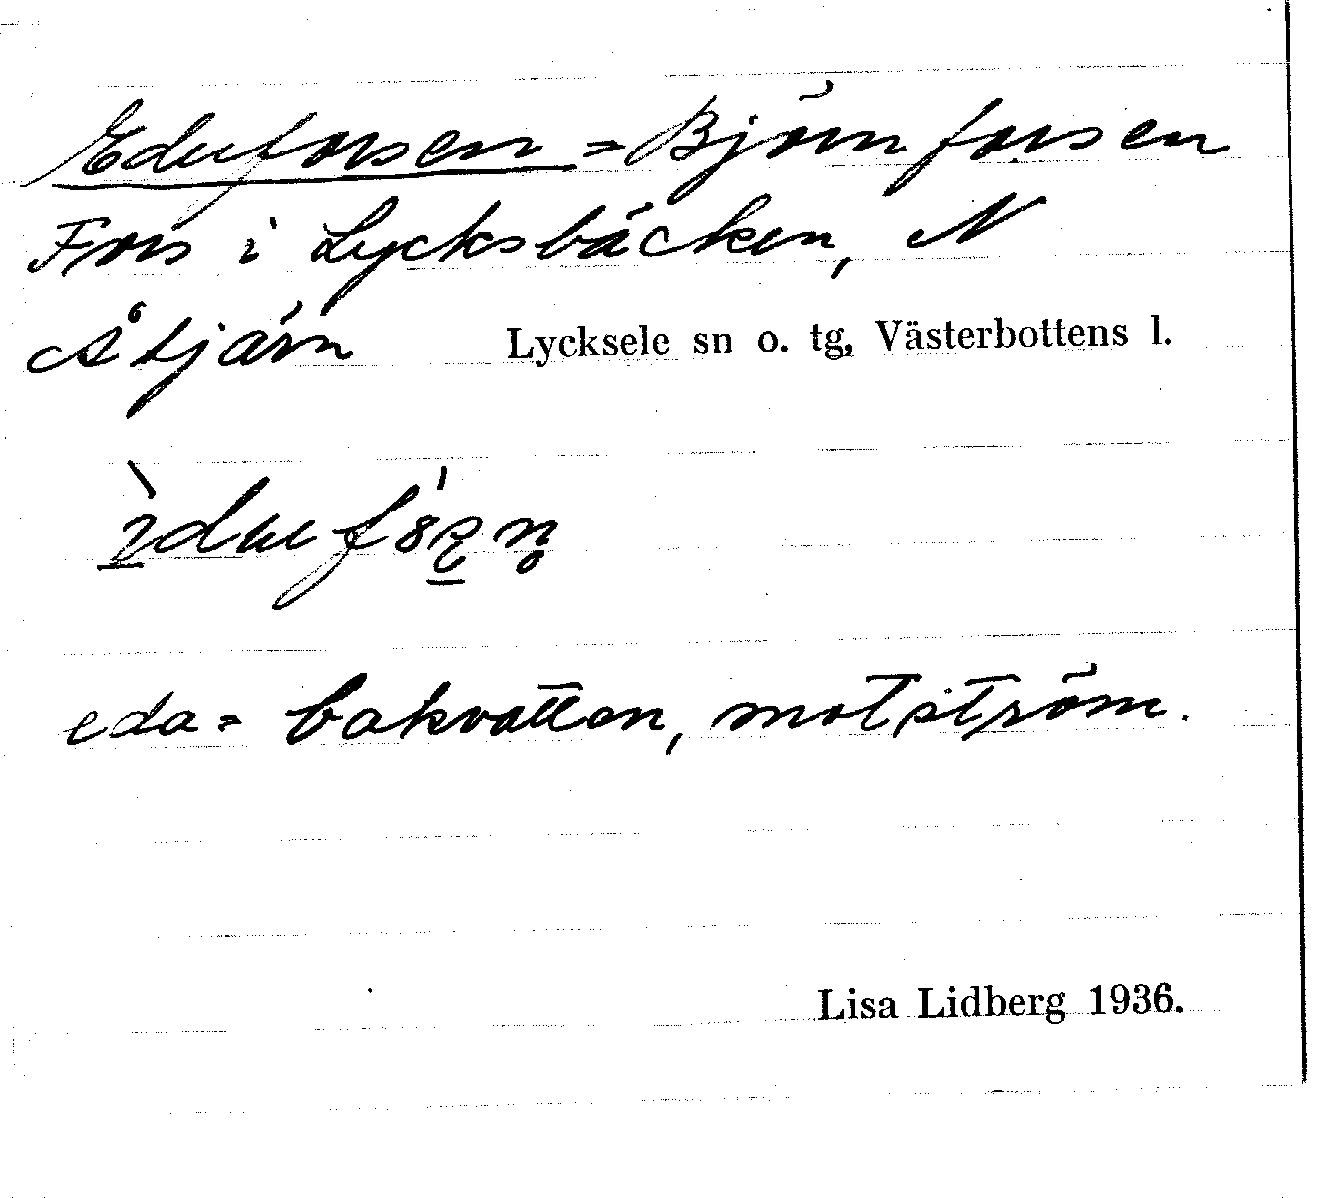 Eduforsen = Björnforsen
Fors i Lycksbäcken, N
Åtjärn Lycksele sn o. tg, Västerbottens l.
eda = bakvatten, motström.
Lisa Lidberg 1936.